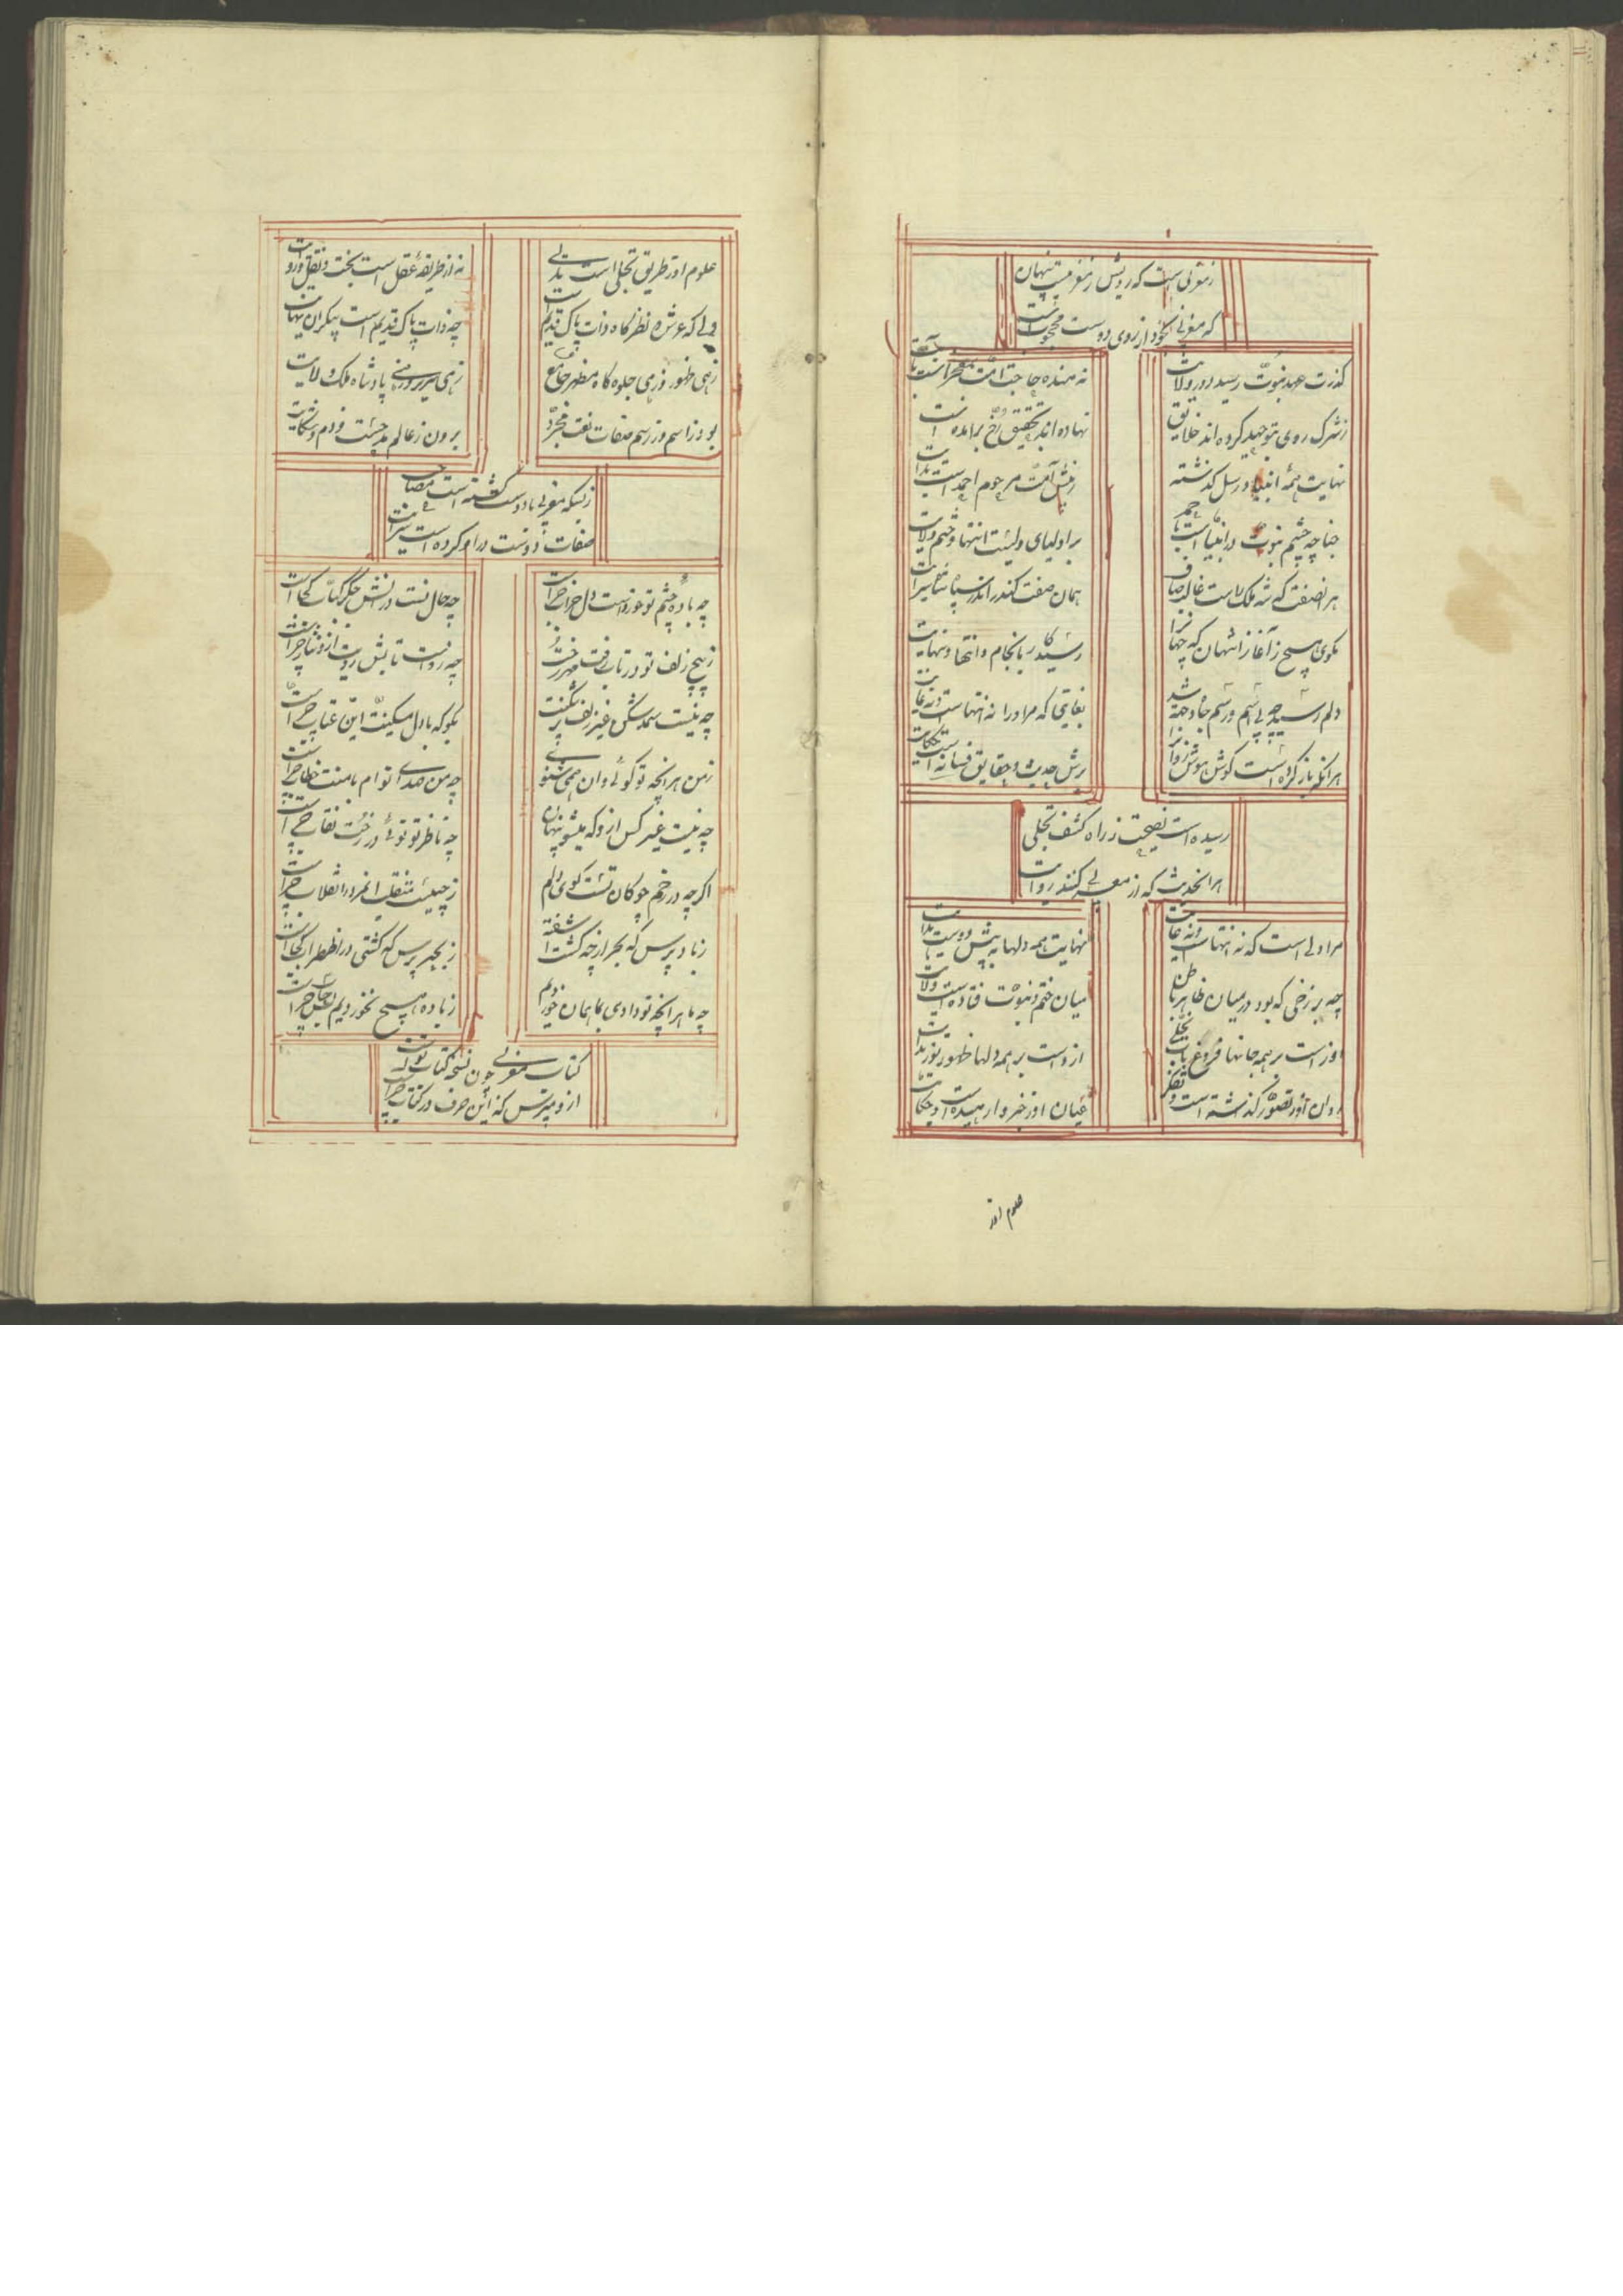 زمغربی است که رویش زمغربیست پنهان
که مغربی بخود از روی دوست محجوب است
گذشت عهد نبوت رسید دور ولایت
نماینده حاجت امت
ز شرک روی بتوحید کرده اند خلایق
نهاده اند بتحقیق رخ برا
نهایت همه انبیا و رسل گذشته
زپیش امت مرحوم احمد است بدایت
چنانچه ختم نبوت در انبیا است
بر اولیای ولیست انتها و ختم ولایت
هر آنصفت که شه ملک راست غالب
همان صفت کند اندر سپاه شاه سرایت
بگوی هیچ ز آغاز انتهان که جهانرا
رسید کار بانجام و انتها و نهایت
دلم رسید چو بی اسم و رسم جاوجهة شد
بغایتی که مر او را نه انتهاست و نه غایت
هر آنکه باز کرده است گوش هوش
برش حدیث و حقایق فسانه است و حکایت
رسیده است نصیحت ز راه کشف تجلی
هر انحدیث که از مغربی کنند روایت
مرا دلی است که نه انتهاست و نه غایت
نهایت همه دلها به پیش دوست بدایت
چه برزخی که بود در میان ظاهر باطن
میان ختم و نبوت فتاده است و ولایت
اوراست بر همه جانها فروغ تاب تجلی
ازوست بر همه دلها ظهور نور بدایت
روان او ز تصور گذشته است و تفکر
عیان او ز خبر وارهیده است و حکایت
علوم او
علوم او ز طریق تجلی است تدلی
نه از طریقهٔ عقل است بحث و نقل و روایت
دلی که عرش و نظرگاه ذات پاک قدیم است
چه ذات پاک قدیم است بیکران بنهایت
زهی ظهور و زهی جلوه گاه مظهر جامع
زهی سریر و زهی پادشاه ملک ولایت
بود ز اسم و ز رسم صفات نعت مجرد
برون ز عالم مدحست و ذم و شکایت
زبسکه مغربی با دوست گشته است مصاحب
صفات دوست در او کرده است سرایت
چه باده چشم تو خوردست دل خراب چراست
چه خال تست در آتش جگر کباب چراست
ز پیچ زلف تو در تاب رفت مهر رخت
چه روست تابش رویت ازو بتاب چراست
چه نیست سمدش غیر زلف پر شکنت
بگو که با دل مسکینت این عتاب چراست
ز من هر انچه تو گوئی و ان همی شنوی
چه من صدای توام با منت خطاب چراست
چه نیست غیر کس از و که میشو پنهان
چه ناظر تو توئی در رخت نقاب چراست
اگر چه در خم چوگان تست گوی دلم
ز چیست منقلب اندر انقلاب چراست
ز باد پرس که بحر از چه گشت اشفته
ز بحر پرس که کشتی در اضطراب چراست
چه ما هر انچه تو دادی بما همان خوردیم
ز باده هیچ نخوردیم چراست
کتاب مغربی چون نسخه کتاب تو است
ازو مپرس که این حرف در کتاب چراست